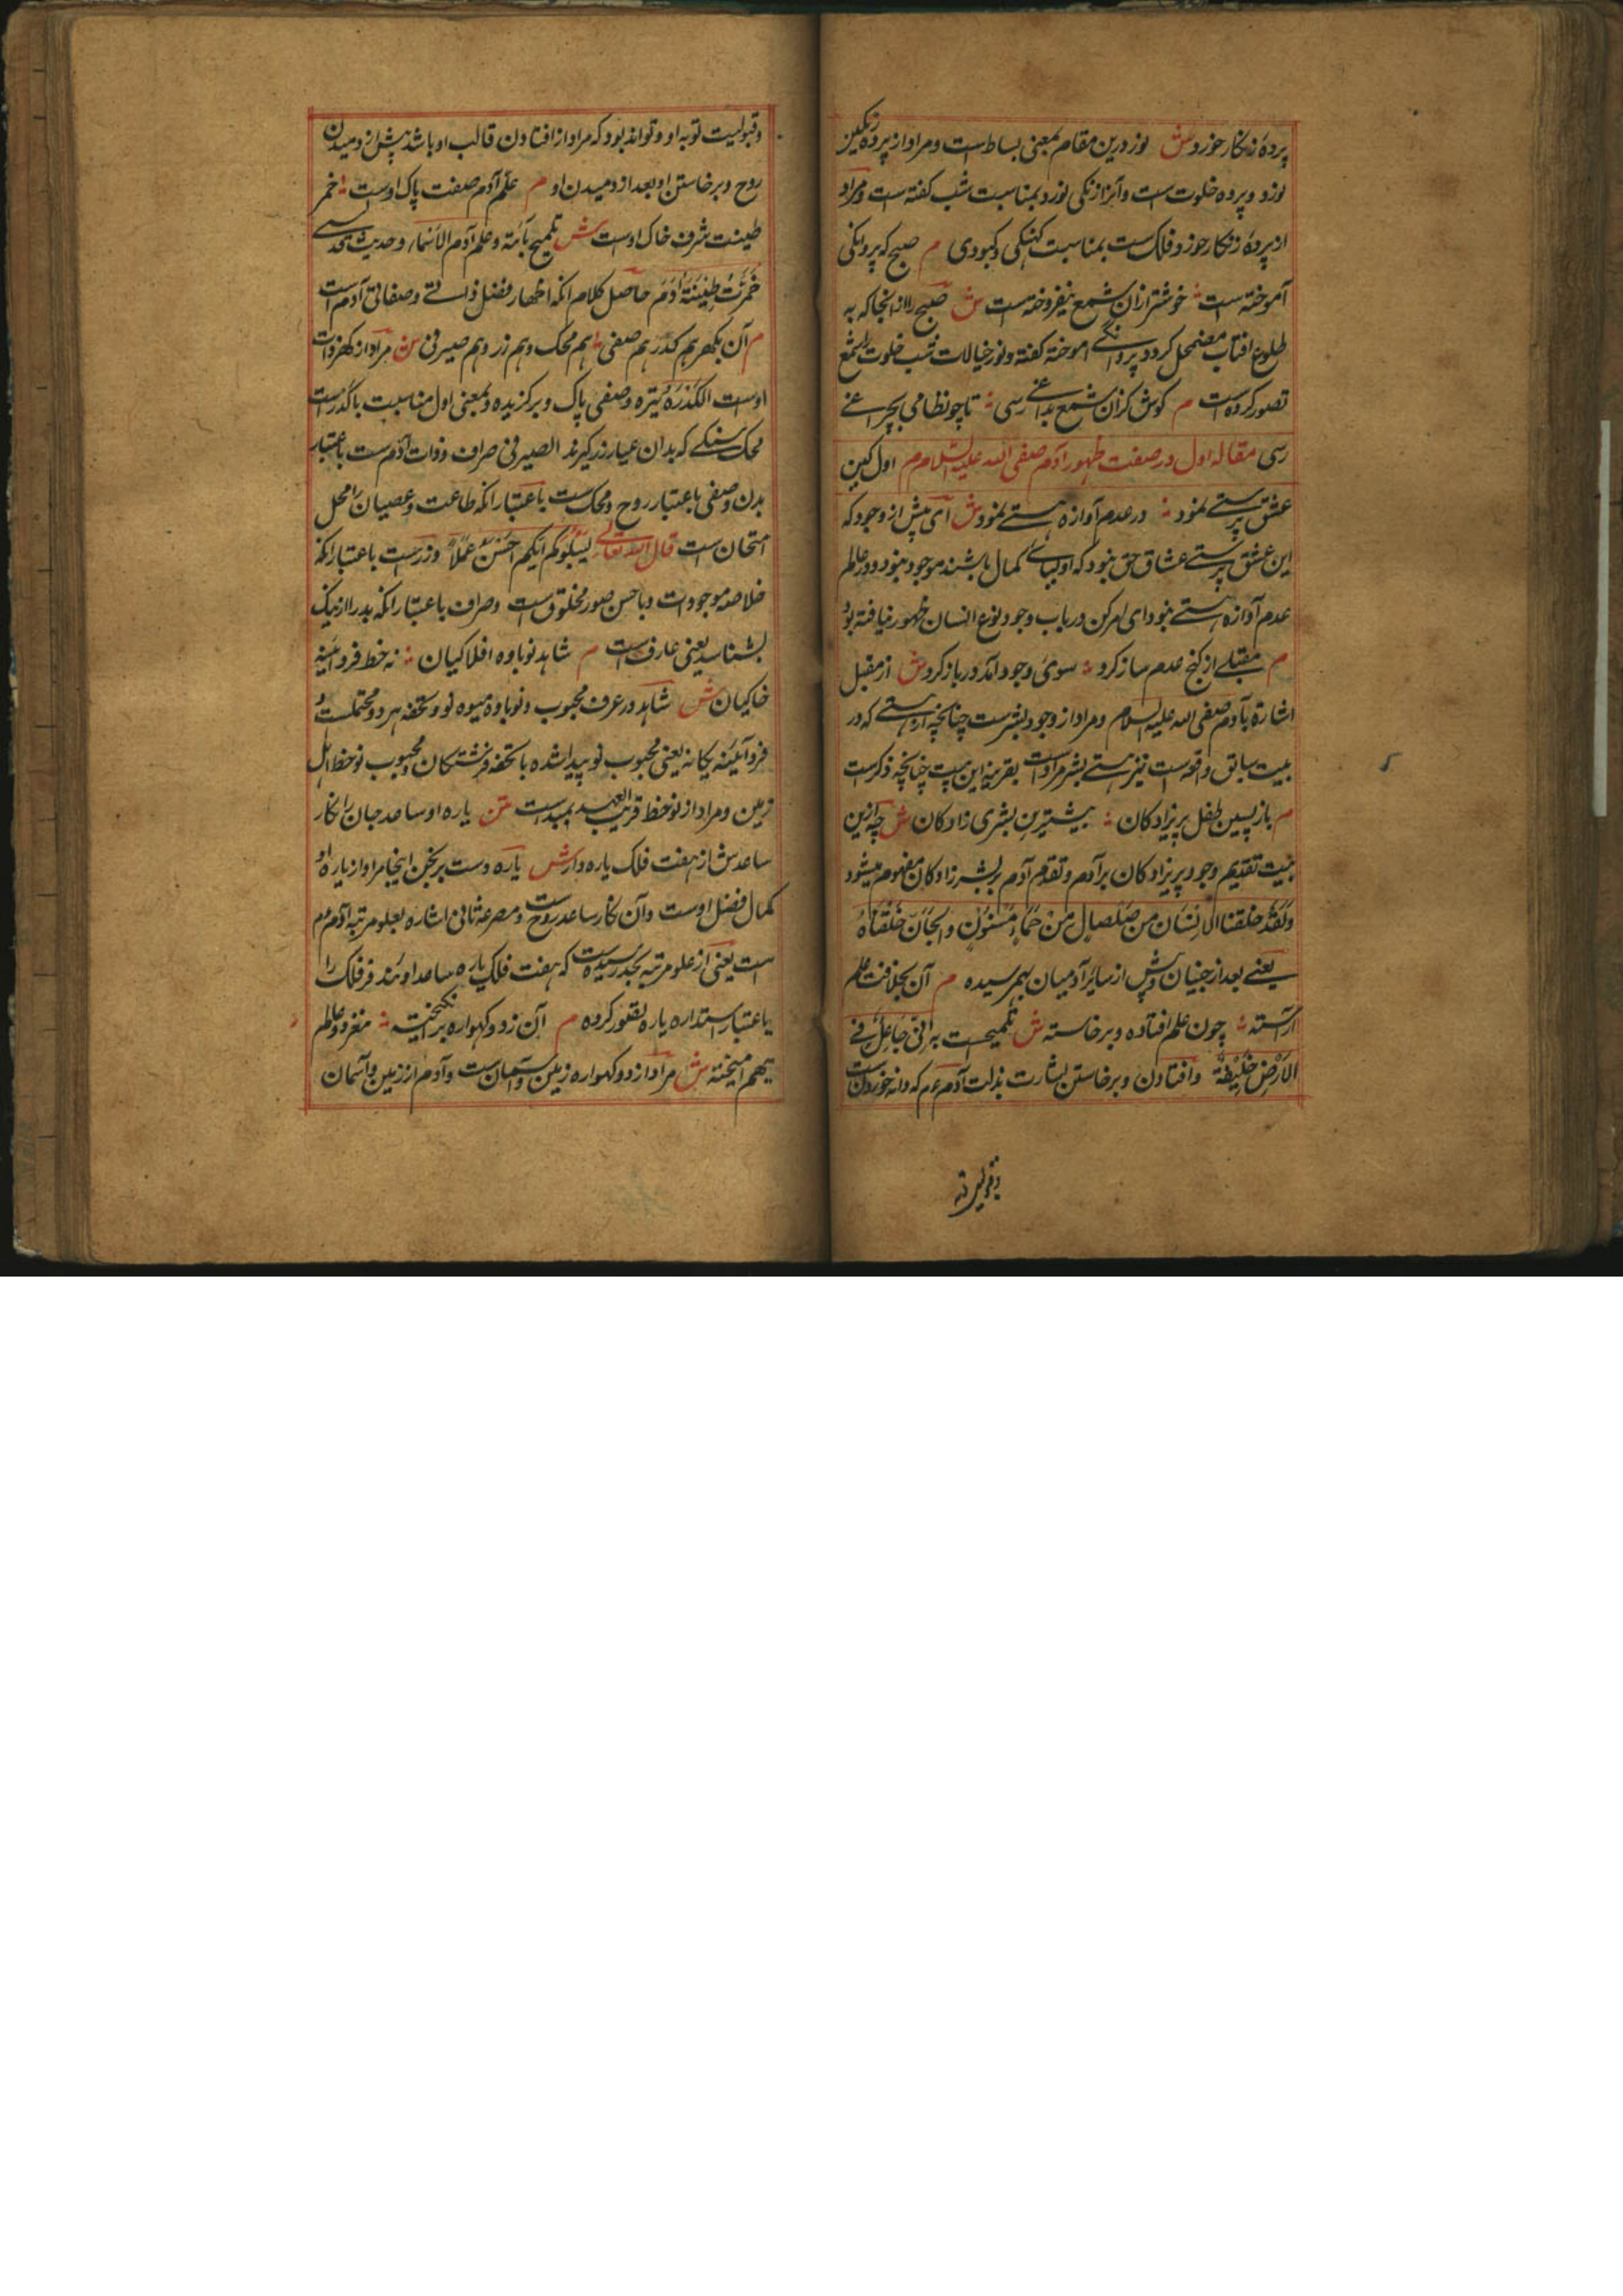 پرده زنکار خورد ش نورد درین مقام بمعنی بساط است و مراد از پرده رنکین
نورد و پرده خلوت است و آنرا زنکی نورد بمناسبت شب کفته است و مراد
از پرده زنکار خورد فلک است بمناسبت کهنکی و کبودی م صبح که پروانکی
آموخته است خوشتر ازان شمع نیفروخته است ش صبح را از انجا که به
طلوع افتاب مضمحل کردد پروانکی اموخته کفته و نور خیالات شب خلوت را شمع
تصور کرده است م کوش کزان شمع بداغی رسی تا چو نظامی بچراغی
رسی مقاله اول در صفت ظهور آدم صفی الله علیه السلام م اول کین
عشق پرستی نبود در عدم آوازه هستی نبود ش ای پیش از وجود که
این عشق پرستی عشاق حق نبود که اولیای کمال باشند موجود نبود و در عالم
عدم آوازه هستی نبود ای امر کن در باب وجود نوع انسان ظهور نیافته بود
م مقبلی از کنج عدم ساز کرد سوی وجود آمد و در باز کرد ش از مقبل
اشارة بآدم صفی الله علیه السلام و مراد از وجود بشرست چنانچه از هستی که در
بیت سابق واقع است نیز هستی بشر مراد است بقرینه این بیت چنانچه ذکرست
م باز پسین طفل پریزادکان بیشترین بشری زادکان ش چه ازین
بیت تقدیم وجود پریزادکان بر آدم و تقدم آدم بر بشر زادکان مفهوم میشود
ولقد خلقنا الانسان من صلصال من حماء مسنون والجان خلقناه
یعنی بعد از جنیان و پیش از سایر آدمیان بهم رسیده م آن بخلافت علم
آراسته چون علم افتاده و برخاسته ش تلمیح است به انی جاعل فی
الارض خلیفة و افتادن و برخاستن بشارت بذلت آدم عم که دانه خوردن است
و قبولیت توبه
و قبولیت توبه او و تواند بود که مراد از افتادن قالب او باشد پیش از دمیدن
روح و برخاستن او بعد از دمیدن او م علم آدم صفت پاک اوست خمر
طینت شرف خاک اوست ش تلمیح بآیة و علم آدم الاسماء و حدیث قدسی
خمرت طینة آدم حاصل کلام انکه اظهار فضل ذاتی و صفاتی آدم است
م آن بکهر هم کدر هم صفی هم محک و هم زر و هم صیرفی ش مراد از کهر ذات
اوست الکدره تیره و صفی پاک و برکزیده و بمعنی اول مناسبت با کدرست
محک سنکی که بدان عیار زر کیرند الصیرفی صراف و ذات آدم ست باعتبار
بدن و صفی باعتبار روح و محک ست باعتبار انکه طاعت و عصیان را محل
امتحان است قال الله تعالی لیبلوکم ایکم احسن عملا و زرست باعتبار انکه
خلاصه موجودات و باحسن صور مخلوق است و صراف باعتبار انکه بد را از نیک
بشناسد یعنی عارف است م شاهد نوباوه افلاکیان نه خط فرد آئینه
خاکیان ش شاهد در عرف محبوب و نوباوه میوه نو و تحفه هر دو محتملست و
فرد آئینه یکانه یعنی محبوب نو پیدا شده با تحفه فرشتکان و محبوب نوخط اهل
زمین و مراد از نوخط قریب العهد بمبداست متن یاره او ساعد جان را نکار
ساعدش از هفت فلک یاره دار ش یاره دست برنجن اینجا مراد از یاره او
کمال فضل اوست و آن نکار ساعد روحست و مصرعه ثانی اشاره بعلو مرتبه آدم عم
است یعنی از علو مرتبه بحد رسیده است که هفت فلک یاره ساعد اوئند فر فلک را
باعتبار استداره یاره تصور کرده م آن ز دو کهواره برانکیخته مغز دو عالم
بهم آمیخته ش مراد از دو کهواره زمین و آسمان است و آدم از زمین و آسمان